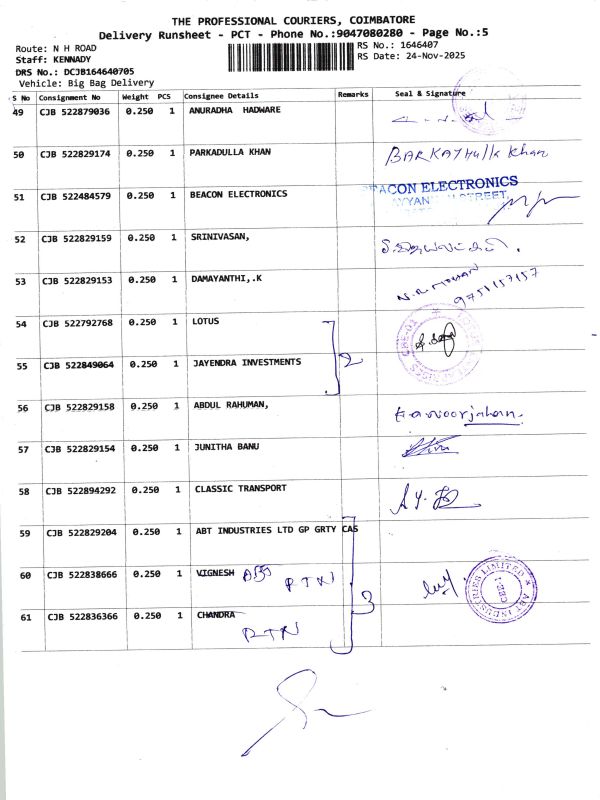 THE PROFESSIONAL COURIERS, COIMBATORE
Delivery Runsheet - PCT - Phone No.:9047080280 - Page No.:5
Route: N H ROAD
Staff: KENNADY
DRS No.: DCJB164640705
Vehicle: Big Bag Delivery
RS No.: 1646407
RS Date: 24-Nov-2025
S No Consignment No Weight PCS Consignee Details Remarks Seal & Signature
49 CJB 522879036 0.250 1 ANURADHA HADWARE
50 CJB 522829174 0.250 1 PARKADULLA KHAN BARKATHulla Khan
51 CJB 522484579 0.250 1 BEACON ELECTRONICS BEACON ELECTRONICS
STREET,
52 CJB 522829159 0.250 1 SRINIVASAN,
53 CJB 522829153 0.250 1 DAMAYANTHI,.K N.R MOHAN
9751157157
54 CJB 522792768 0.250 1 LOTUS
55 CJB 522849064 0.250 1 JAYENDRA INVESTMENTS 2
56 CJB 522829158 0.250 1 ABDUL RAHUMAN, noorjahan.
57 CJB 522829154 0.250 1 JUNITHA BANU
58 CJB 522894292 0.250 1 CLASSIC TRANSPORT
59 CJB 522829204 0.250 1 ABT INDUSTRIES LTD GP GRTY CAS
60 CJB 522838666 0.250 1 VIGNESH RTN 3 ABT INDUSTRIES LIMITED
61 CJB 522836366 0.250 1 CHANDRA
RTN